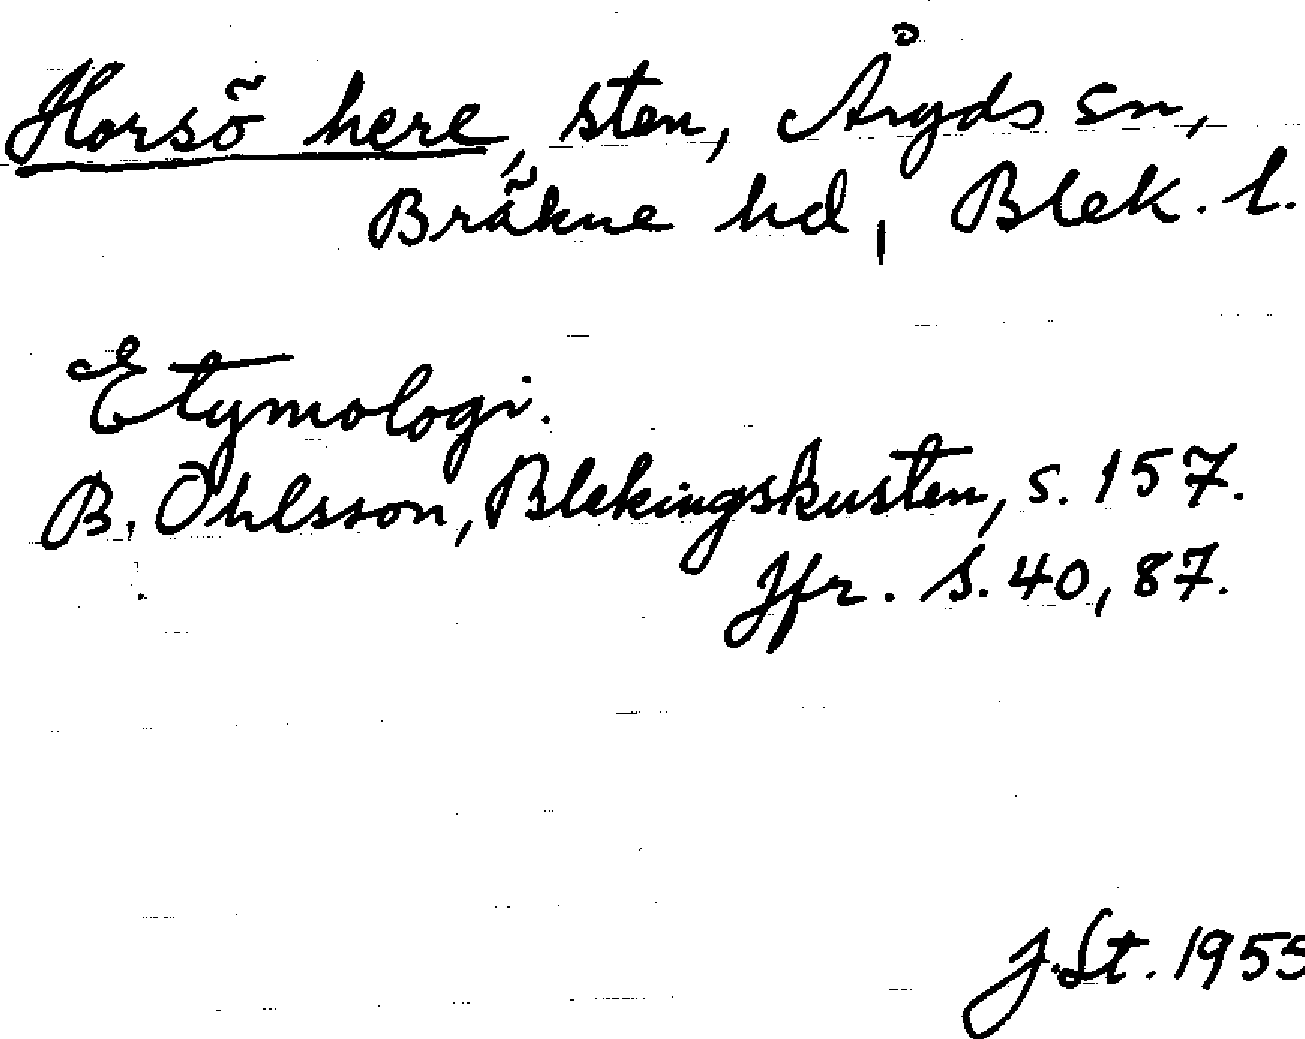 Horsö here, sten, Åryds sn,
Bräkne hd, Blek. l.
Etymologi.
B. Öhlsson, Blekingskusten, s. 157.
Jfr. s. 40, 87.
J.St. 1955